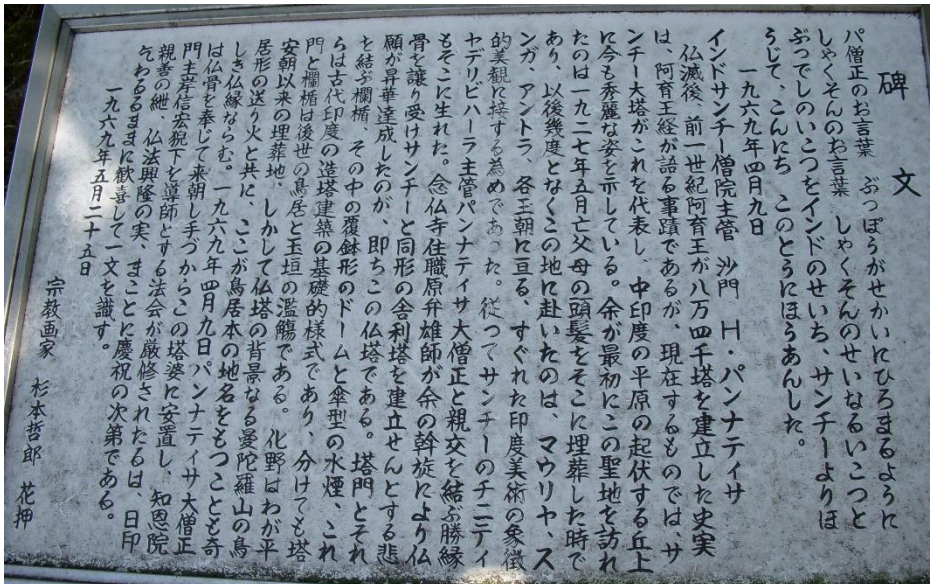 碑文
パ僧正のお言葉　ぶっぽうがせかいにひろまるように
しゃくそんのお言葉　しゃくそんのせいなるいこつと
ぶつでしのいこつをインドのせいち、サンチーよりほ
うじて、こんにち　このとうにほうあんした。
一九六九年四月九日
インドサンチー僧院主管　沙門　H・パンナティサ
仏滅後、前一世紀阿育王が八万四千塔を建立した史実
は、阿育王経が語る事蹟であるが、現在するものでは、サ
ンチー大塔がこれを代表し、中印度の平原の起伏する丘上
に今も秀麗な姿を示している。余が最初にこの聖地を訪れ
たのは一九二七年五月亡父母の頭髪をそこに埋葬した時で
あり、以後幾度となくこの地に赴いたのは、マウリヤ、ス
ンガ、アントラ、各王朝に亘る、すぐれた印度美術の象徴
的美観に接する為めであった。従つてサンチーのチェティ
ヤデリビハーラ主管パンナティサ大僧正と親交を結ぶ勝縁
もそこに生れた。念仏寺住職原弁雄師が余の斡旋により仏
骨を譲り受けサンチーと同形の舎利塔を建立せんとする悲
願が昇華達成したのが、即ちこの仏塔である。塔門とそれ
を結ぶ欄楯　その中の覆鉢形のドームと傘型の水煙、これ
らは古代印度の造塔建築の基礎的様式であり、分けても塔
門と欄楯は後世の鳥居と玉垣の濫觴である。化野はわが平
安朝以来の埋葬地、しかして仏塔の背景なる曼陀羅山の鳥
居形の送り火と共に、ここが鳥居本の地名をもつことも奇
しき仏縁ならむ。一九六九年四月九日パンナティサ大僧正
は仏骨を奉じて来朝し手づからこの塔婆に安置し、知恩院
門主岸信宏猊下を導師とする法会が厳修されたるは、日印
親善の紲、仏法興隆の実、まことに慶祝の次第である。
乞わるるままに歓喜して一文を識す。
一九六九年五月二十五日
宗教画家　杉本哲郎　花押